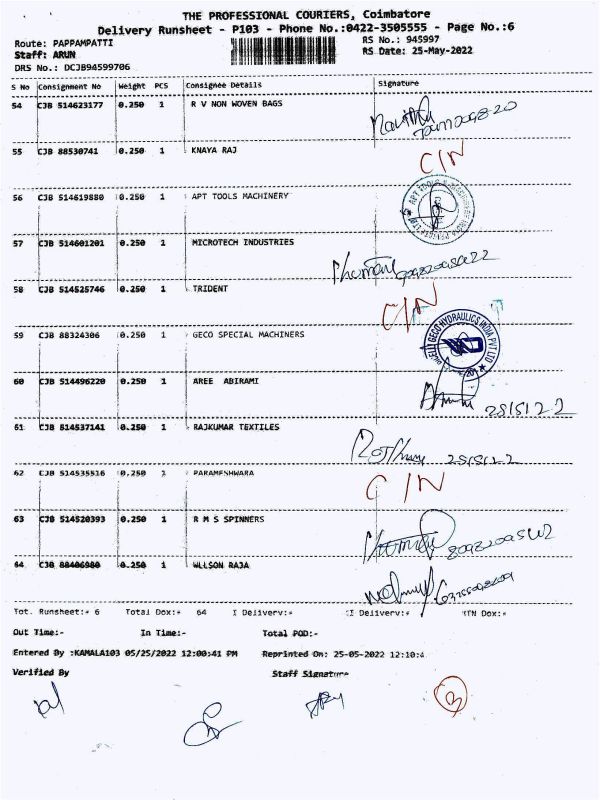 THE PROFESSIONAL COURIERS, Coimbatore
Delivery Runsheet - P103 - Phone No.:0422-3505555 - Page No.:6
Route: PAPPAMPATTI RS No.: 945997
Staff: ARUN RS Date: 25-May-2022
DRS No.: DCJB94599706
S No Consignment No Weight PCS Consignee Details Signature
54 CJB 514623177 0.250 1 R V NON WOVEN BAGS
55 CJB 88530741 0.250 1 KNAYA RAJ C/N
56 CJB 514619880 0.250 1 APT TOOLS MACHINERY
57 CJB 514601201 0.250 1 MICROTECH INDUSTRIES
58 CJB 514525746 0.250 1 TRIDENT C/N
59 CJB 88324306 0.250 1 GECO SPECIAL MACHINERS
GECO HYDRAULICS INDIA PVT LTD
60 CJB 514496220 0.250 1 AREE ABIRAMI 25/5/22
61 CJB 514537141 0.250 1 RAJKUMAR TEXTILES 25/5/22
62 CJB 514535516 0.250 1 PARAMESHWARA C/N
63 CJB 514520393 0.250 1 R M S SPINNERS
64 CJB 88406980 0.250 1 WLLSON RAJA
Tot. Runsheet:* 6 Total Dox:* 64 I Delivery:* II Delivery:* NTN Dox:*
Out Time:- In Time:- Total POD:-
Entered By :KAMALA103 05/25/2022 12:00:41 PM Reprinted On: 25-05-2022 12:10:4
Verified By Staff Signature
3